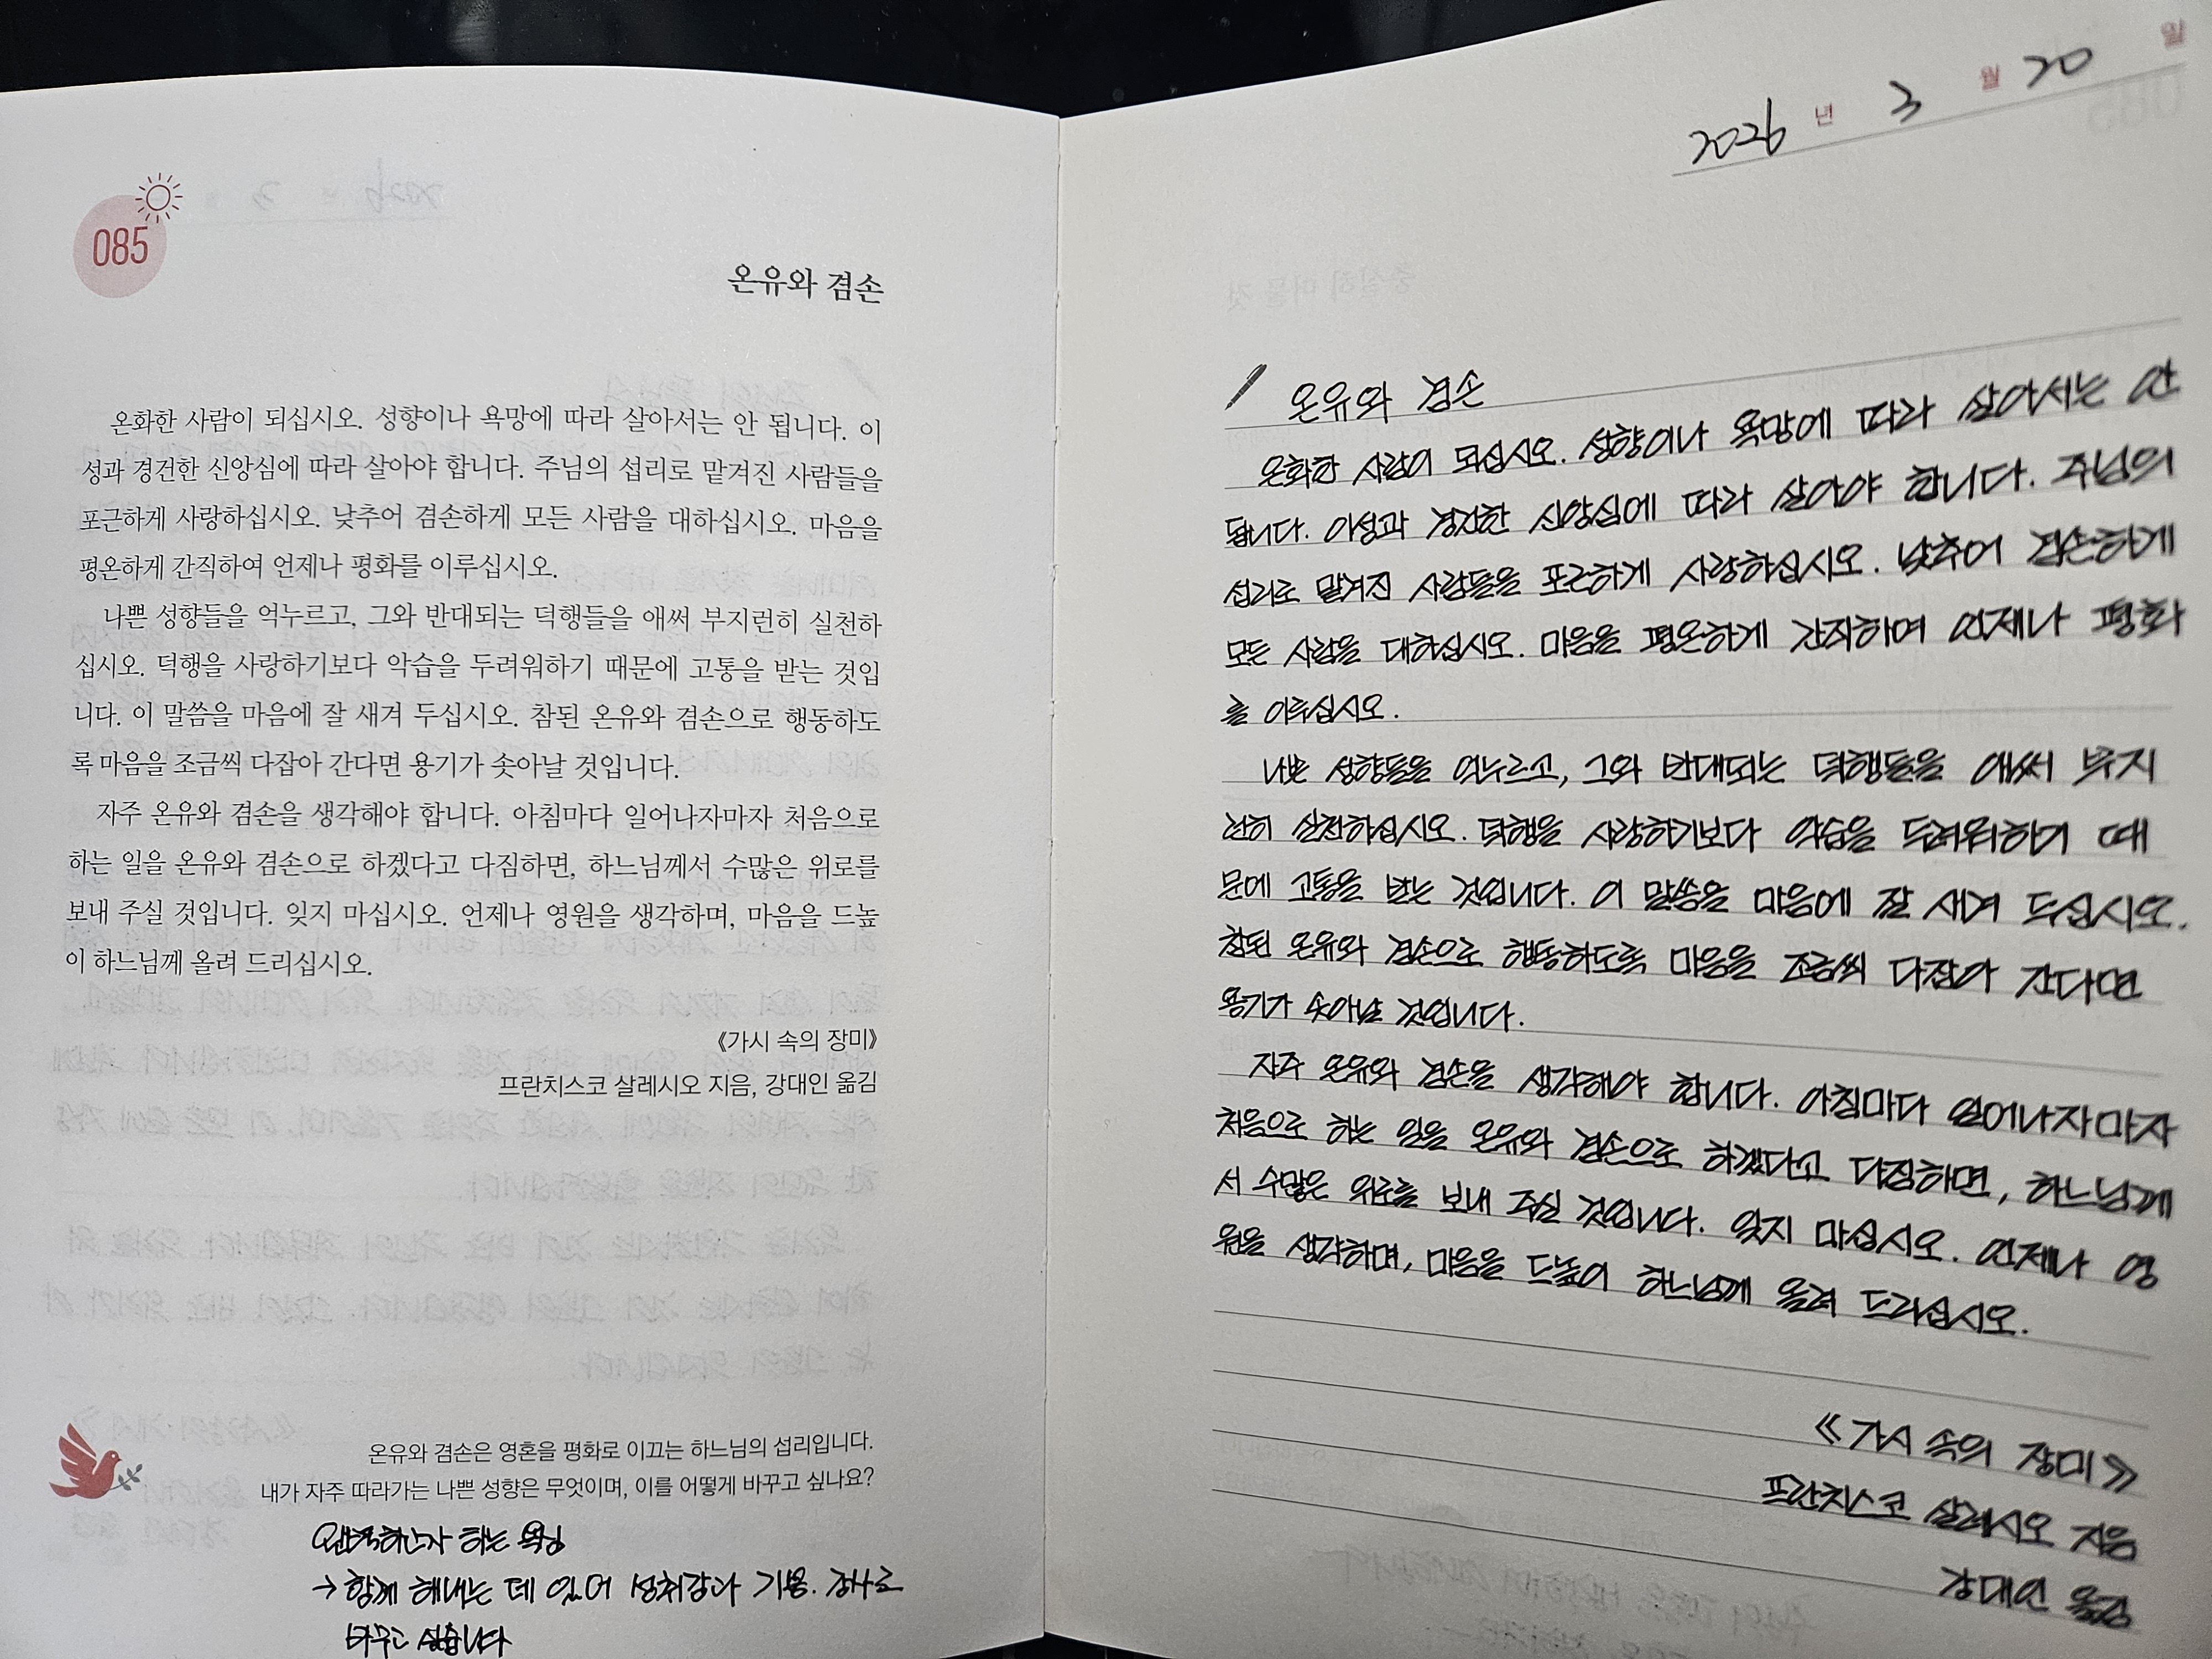 085
온유와 겸손
온화한 사람이 되십시오. 성향이나 욕망에 따라 살아서는 안 됩니다. 이
성과 경건한 신앙심에 따라 살아야 합니다. 주님의 섭리로 맡겨진 사람들을
포근하게 사랑하십시오. 낮추어 겸손하게 모든 사람을 대하십시오. 마음을
평온하게 간직하여 언제나 평화를 이루십시오.
나쁜 성향들을 억누르고, 그와 반대되는 덕행들을 애써 부지런히 실천하
십시오. 덕행을 사랑하기보다 악습을 두려워하기 때문에 고통을 받는 것입
니다. 이 말씀을 마음에 잘 새겨 두십시오. 참된 온유와 겸손으로 행동하도
록 마음을 조금씩 다잡아 간다면 용기가 솟아날 것입니다.
자주 온유와 겸손을 생각해야 합니다. 아침마다 일어나자마자 처음으로
하는 일을 온유와 겸손으로 하겠다고 다짐하면, 하느님께서 수많은 위로를
보내 주실 것입니다. 잊지 마십시오. 언제나 영원을 생각하며, 마음을 드높
이 하느님께 올려 드리십시오.
《가시 속의 장미》
프란치스코 살레시오 지음, 강대인 옮김
온유와 겸손은 영혼을 평화로 이끄는 하느님의 섭리입니다.
내가 자주 따라가는 나쁜 성향은 무엇이며, 이를 어떻게 바꾸고 싶나요?
완벽하고자 하는 욕심
→ 함께 해내는 데 있어 성취감과 기쁨. 감사로
바꾸고 싶습니다
2026 년 3 월 20 일
온유와 겸손
온화한 사람이 되십시오. 성향이나 욕망에 따라 살아서는 안
됩니다. 이성과 경건한 신앙심에 따라 살아야 합니다. 주님의
섭리로 맡겨진 사람들을 포근하게 사랑하십시오. 낮추어 겸손하게
모든 사람을 대하십시오. 마음을 평온하게 간직하여 언제나 평화
를 이루십시오.
나쁜 성향들을 억누르고, 그와 반대되는 덕행들을 애써 부지
런히 실천하십시오. 덕행을 사랑하기보다 악습을 두려워하기 때
문에 고통을 받는 것입니다. 이 말씀을 마음에 잘 새겨 두십시오.
참된 온유와 겸손으로 행동하도록 마음을 조금씩 다잡아 간다면
용기가 솟아날 것입니다.
자주 온유와 겸손을 생각해야 합니다. 아침마다 일어나자마자
처음으로 하는 일을 온유와 겸손으로 하겠다고 다짐하면, 하느님께
서 수많은 위로를 보내 주실 것입니다. 잊지 마십시오. 언제나 영
원을 생각하며, 마음을 드높이 하느님께 올려 드리십시오.
《가시 속의 장미》
프란치스코 살레시오 지음
강대인 옮김